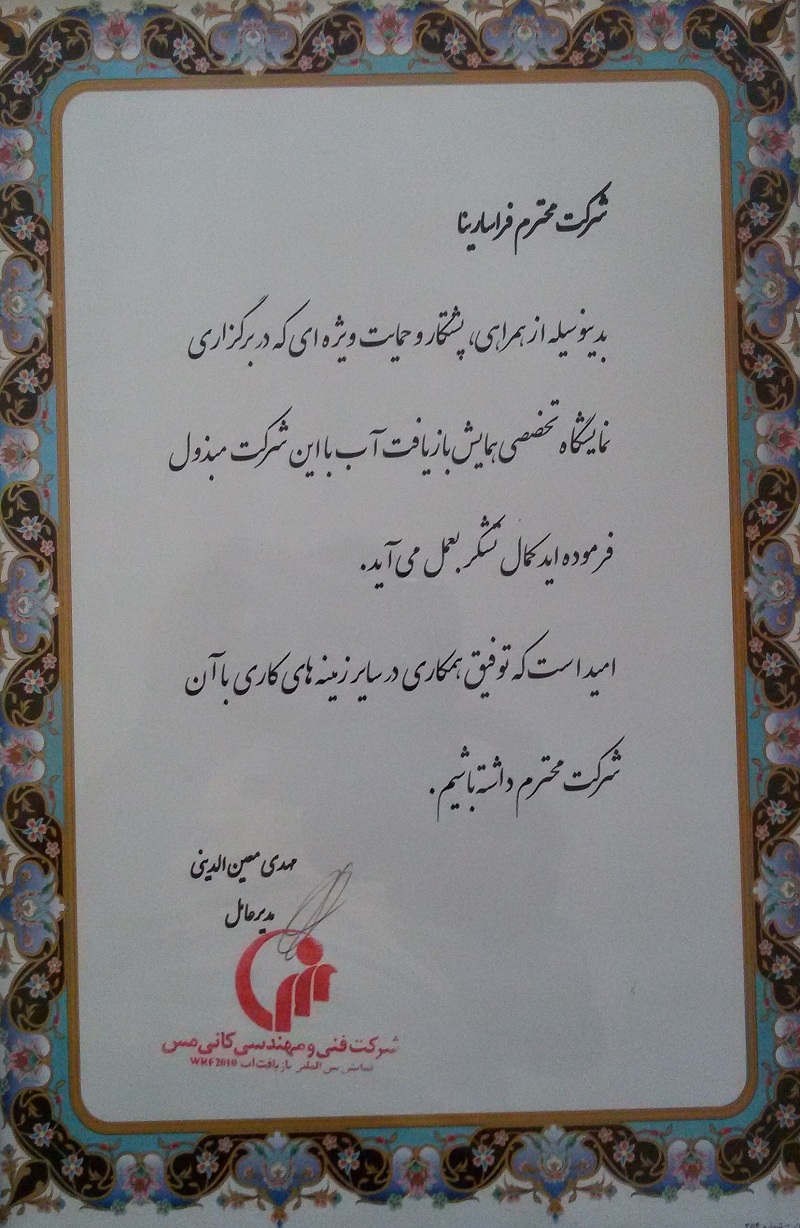 شرکت محترم فراسارینا
بدینوسیله از همراهی، پشتکار و حمایت ویژه ای که در برگزاری
نمایشگاه تخصصی همایش بازیافت آب با این شرکت مبذول
فرموده اید کمال تشکر بعمل می آید.
امید است که توفیق همکاری در سایر زمینه های کاری با آن
شرکت محترم داشته باشیم.
مهدی معین الدینی
مدیرعامل
شرکت فنی و مهندسی کانی مس
همایش بین المللی بازیافت آب WRF2010